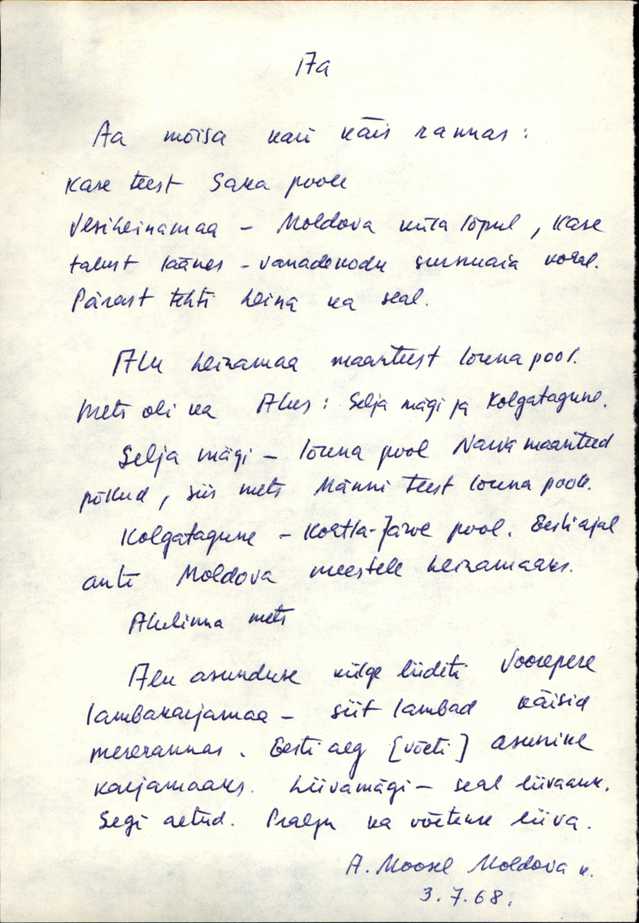 17a
Aa mõisa kari käis rannas:
Kase teest Saka poole
Vesiheinamaa – Moldova küla lõpul, Kase
talust läänes – vanadekodu surnuaia kohal.
Pärast tehti heina ka seal.
Alu heinamaa maanteest lõuna pool.
Mets oli ka Alus: Selja mägi ja Kolgatagune.
Selja mägi – lõuna pool Narva maanteed
põllud, siis mets Männi teest lõuna poole.
Kolgatagune – Kohtla-Järve pool. Eesti ajal
anti Moldova meestele heinamaaks.
Alulinna mets
Alu asunduse külge liideti Voorepere
lambakarjamaa – siit lambad käisid
mererannas. Eesti aeg [võeti] asunike
karjamaaks. Liivamägi – seal liivaauk.
Segi aetud. Praegu ka võetakse liiva.
A. Moosel Moldova k.
3.7.68.